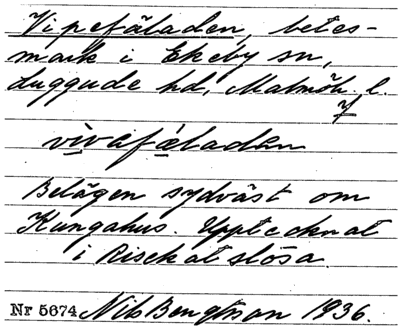 Vipefäladen, betes-
mark i Ekeby sn,
Luggude hd, Malmöh. l.
vivafäladen
Belägen sydväst om
Kungahus. Upptecknat
i Risekatslösa.
Nr 5674 Nils Bengtsson 1936.